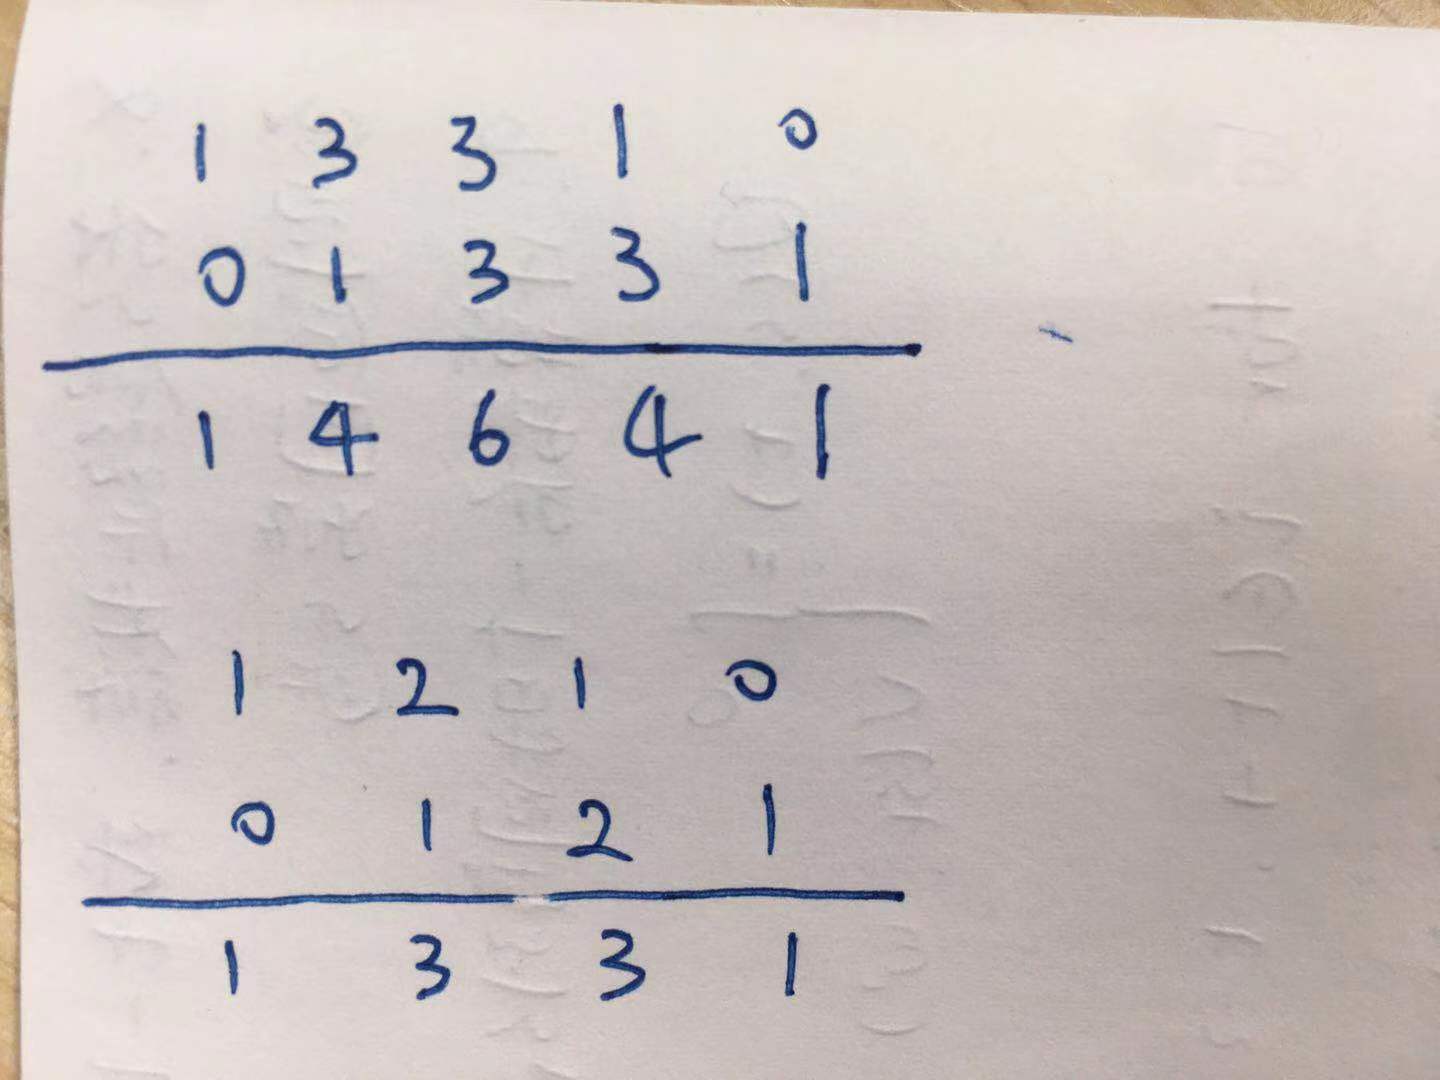 1 3 3 1 0
0 1 3 3 1
1 4 6 4 1
1 2 1 0
0 1 2 1
1 3 3 1